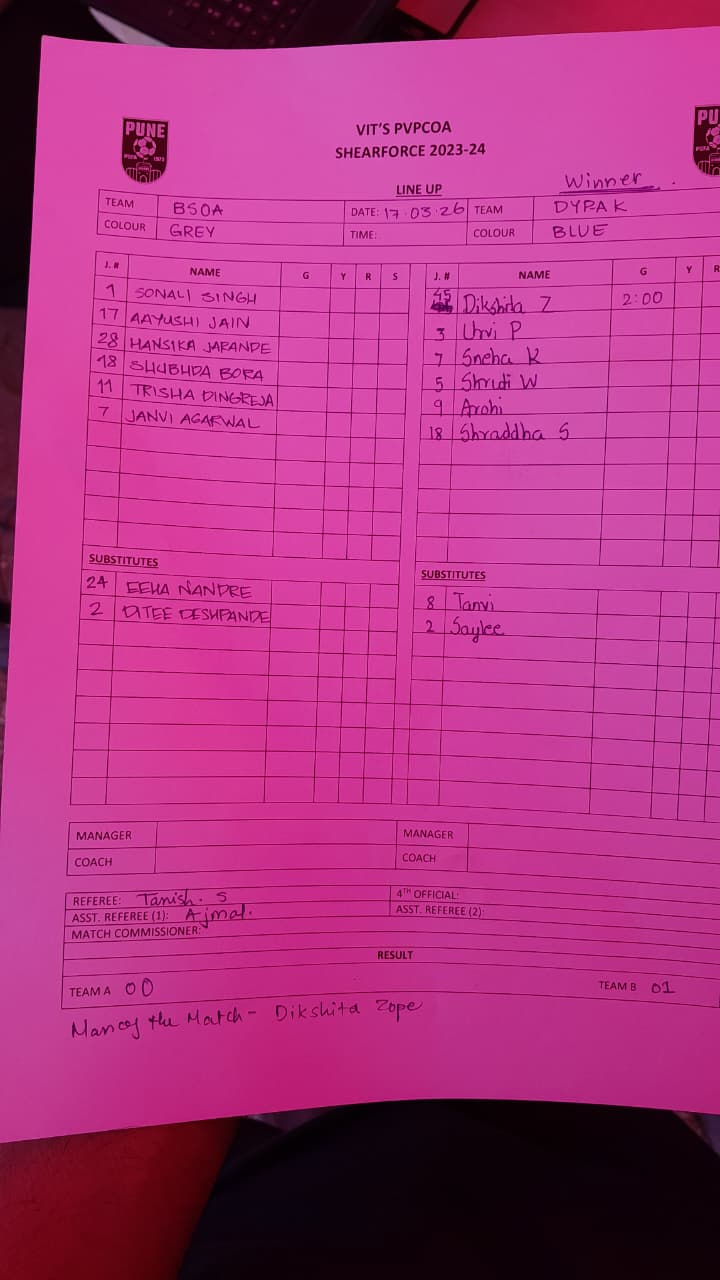 PUNE
PDFA 1972
PU
VIT'S PVPCOA
SHEARFORCE 2023-24
LINE UP
Winner.
TEAM BSOA DATE: 17.03.26 TEAM DYPAK
COLOUR GREY TIME: COLOUR BLUE
J. # NAME G Y R S J. # NAME G Y R
1 SONALI SINGH 45 Dikshita Z 2:00
17 AAYUSHI JAIN 3 Urvi P
28 HANSIKA JARANDE 7 Sneha K
18 SHUBHDA BORA 5 Shruti W
11 TRISHA DINGREJA 9 Arohi
7 JANVI AGARWAL 18 Shraddha S
SUBSTITUTES SUBSTITUTES
24 EEHA NANDRE 8 Tanvi
2 DITEE DESHPANDE 2 Saylee
MANAGER MANAGER
COACH COACH
REFEREE: Tanish. S 4TH OFFICIAL:
ASST. REFEREE (1): Ajmal. ASST. REFEREE (2):
MATCH COMMISSIONER:
RESULT
TEAM A 00 TEAM B 01
Man of the Match - Dikshita Zope